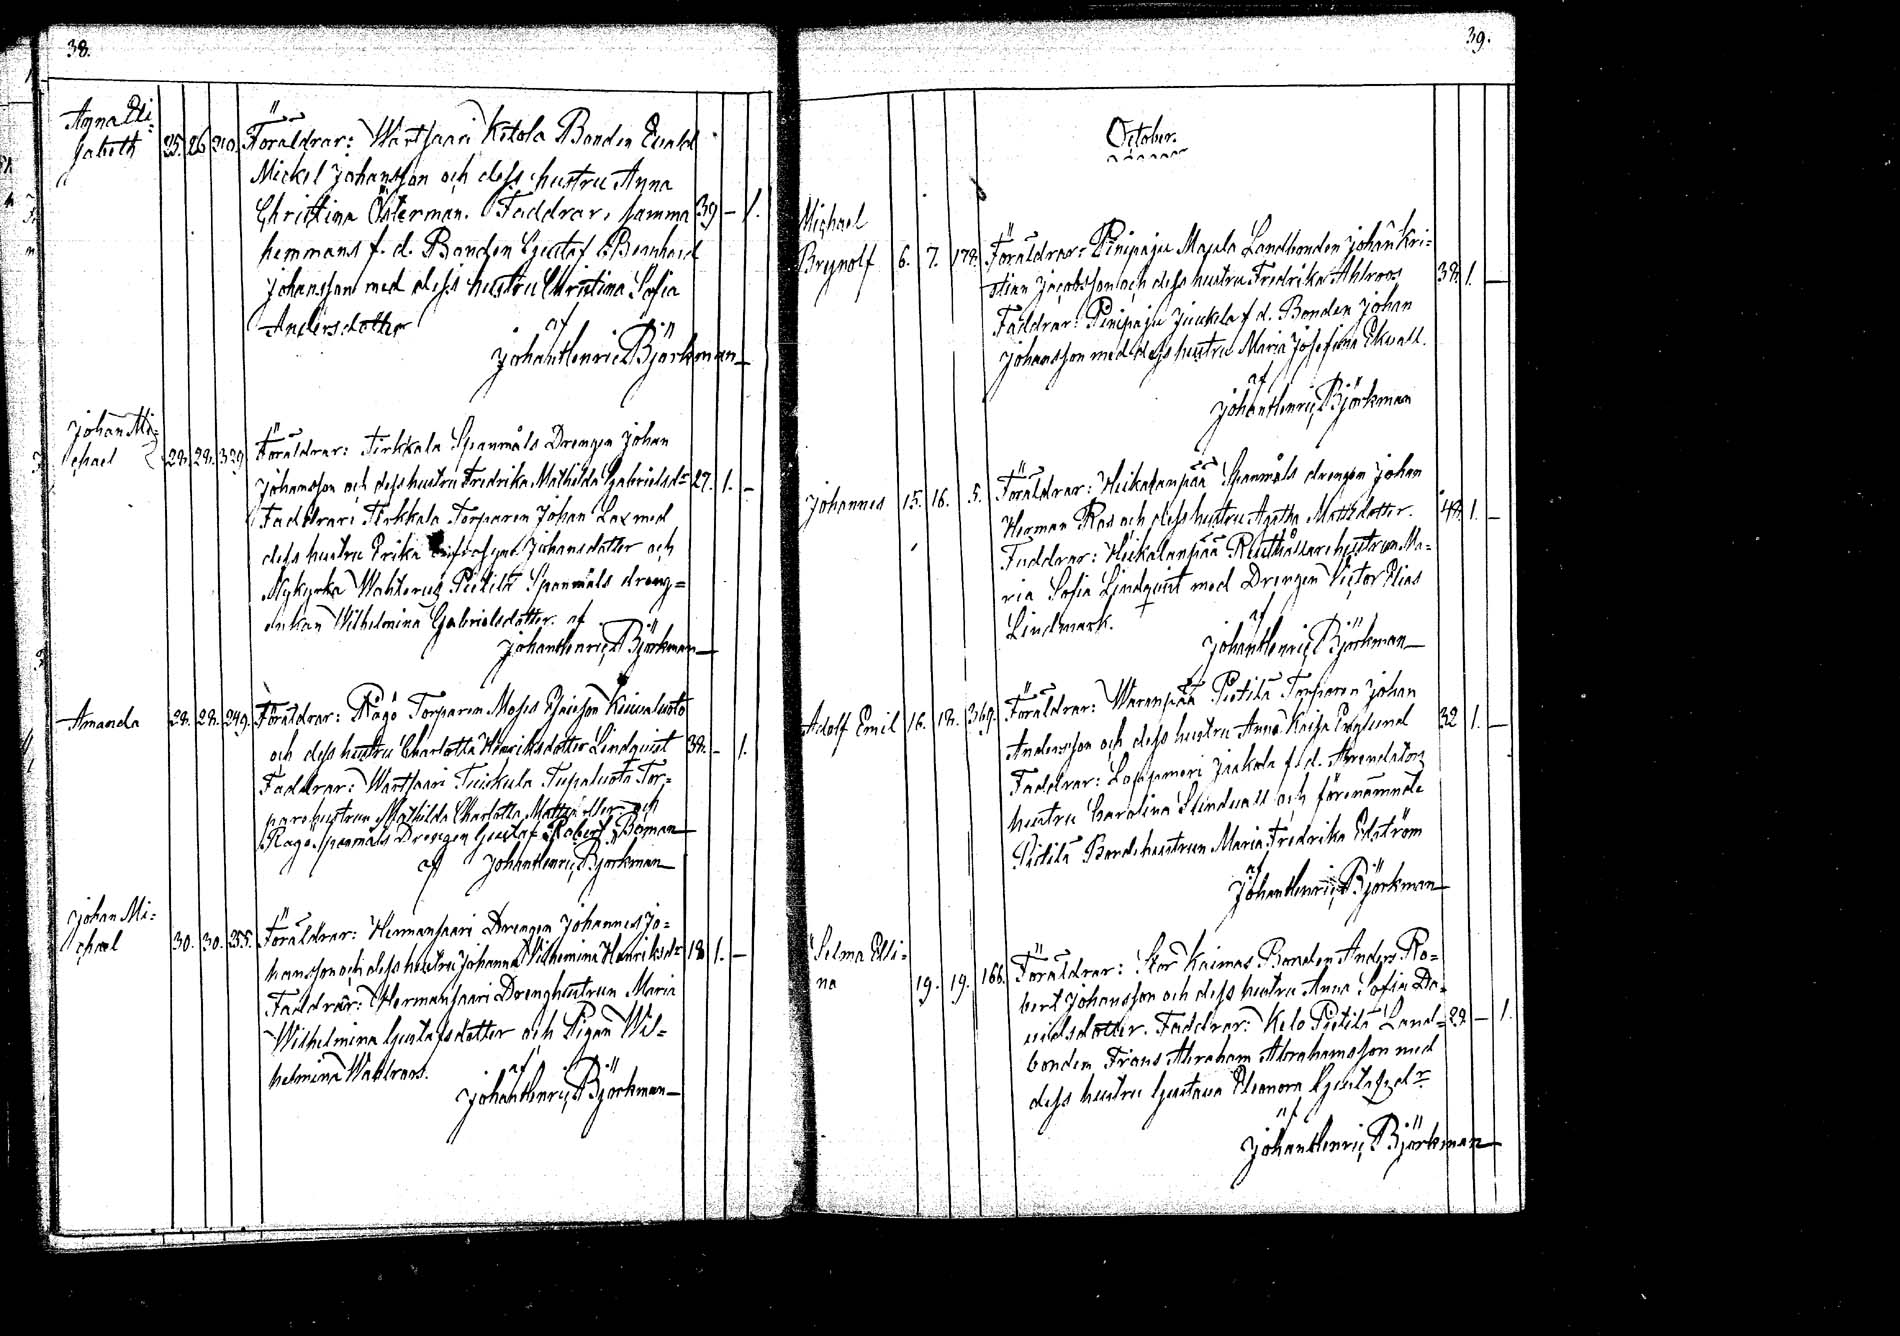 38.
Anna Eli-
sabeth 25. 26 210. Föräldrar: Wartsaari Ketola Bonden Evald
Mickel Johansson och dess hustru Anna
Christina Österman. Faddrar, samma 39 – 1.
hemmans f. d. Bonden Gustaf Bernhard
Johansson med dess hustru Christina Sofia
Andersdotter
af
Johan Henric Björkman
Johan Mi-
chael 28. 28. 329 Föräldrar: Tirkkala Spanmåls Drengen Johan
Johansson och dess hustru Fredrika Mathilda Gabrielsdr 27. 1. –
Faddrar: Tirkkala Torparen Johan Lax med
dess hustru Erika Johansdotter och
Nykyrka Pietilä Spanmåls dreng-
enkan Wilhelmina Gabrielsdotter. af
Johan Henric Björkman
Amanda 28. 28. 249. Föräldrar: Rågö Torparen Moses Esaiesson Kiuvaluoto
och dess hustru Charlotta Henriksdotter Lindquist 38. – 1.
Faddrar: Wartsaari Tuiskula Tupaluoto Tor-
parehustrun Mathilda Charlotta Mattsdotter och
Rågö Spanmåls Drengen Gustaf Robert Boman
af Johan Henric Björkman
Johan Mi-
chael 30. 30. 255. Föräldrar: Hermansaari Drengen Johannes Jo-
hansson och dess hustru Johanna Wilhelmina Henriksdr 18 1. –
Faddrar: Hermansaari Drenghustrun Maria
Wilhelmina Gustafsdotter och Pigan Wil-
helmina Wahlroos.
af
Johan Henric Björkman
39.
October.
Michael
Brynolf 6. 7. 178. Föräldrar: Pinipaju Majula Landbonden Johan Kri-
stian Jacobsson och dess hustru Fredrika Ahlroos 38. 1. –
Faddrar: Pinipaju Juukla f d. Bonden Johan
Johansson med dess hustru Maria Josefina Ekvall.
af
Johan Henric Björkman
Johannes 15. 16. 5. Föräldrar: Heikalanpää Spanmåls drengen Johan
Herman Ros och dess hustru Agatha Mattsdotter. 48. 1. –
Faddrar: Heikalanpää Rusthållarehustrun Ma-
ria Sofia Lindquist med Drengen Victor Elias
Lindmark.
af
Johan Henric Björkman
Adolf Emil 16. 18. 369. Föräldrar: Waranpää Pietilä Torparen Johan
Andersson och dess hustru Anna Kaisa Englund 32 1. –
Faddrar: Jaakola f. d. Arrendators
hustru Carolina Stendvall och förenämnde
Pietilä Bondehustrun Maria Fredrika Edström
af
Johan Henric Björkman
Selma Eli-
na 19. 19. 166. Föräldrar: Stor Kaimas Bonden Anders Ro-
bert Johansson och dess hustru Anna Sofia Da-
vidsdotter. Faddrar: Kelo Pietilä Land- 29. – 1.
bonden Frans Abraham Abrahamsson med
dess hustru Gustava Eleonora Gustafsdr
af
Johan Henric Björkman